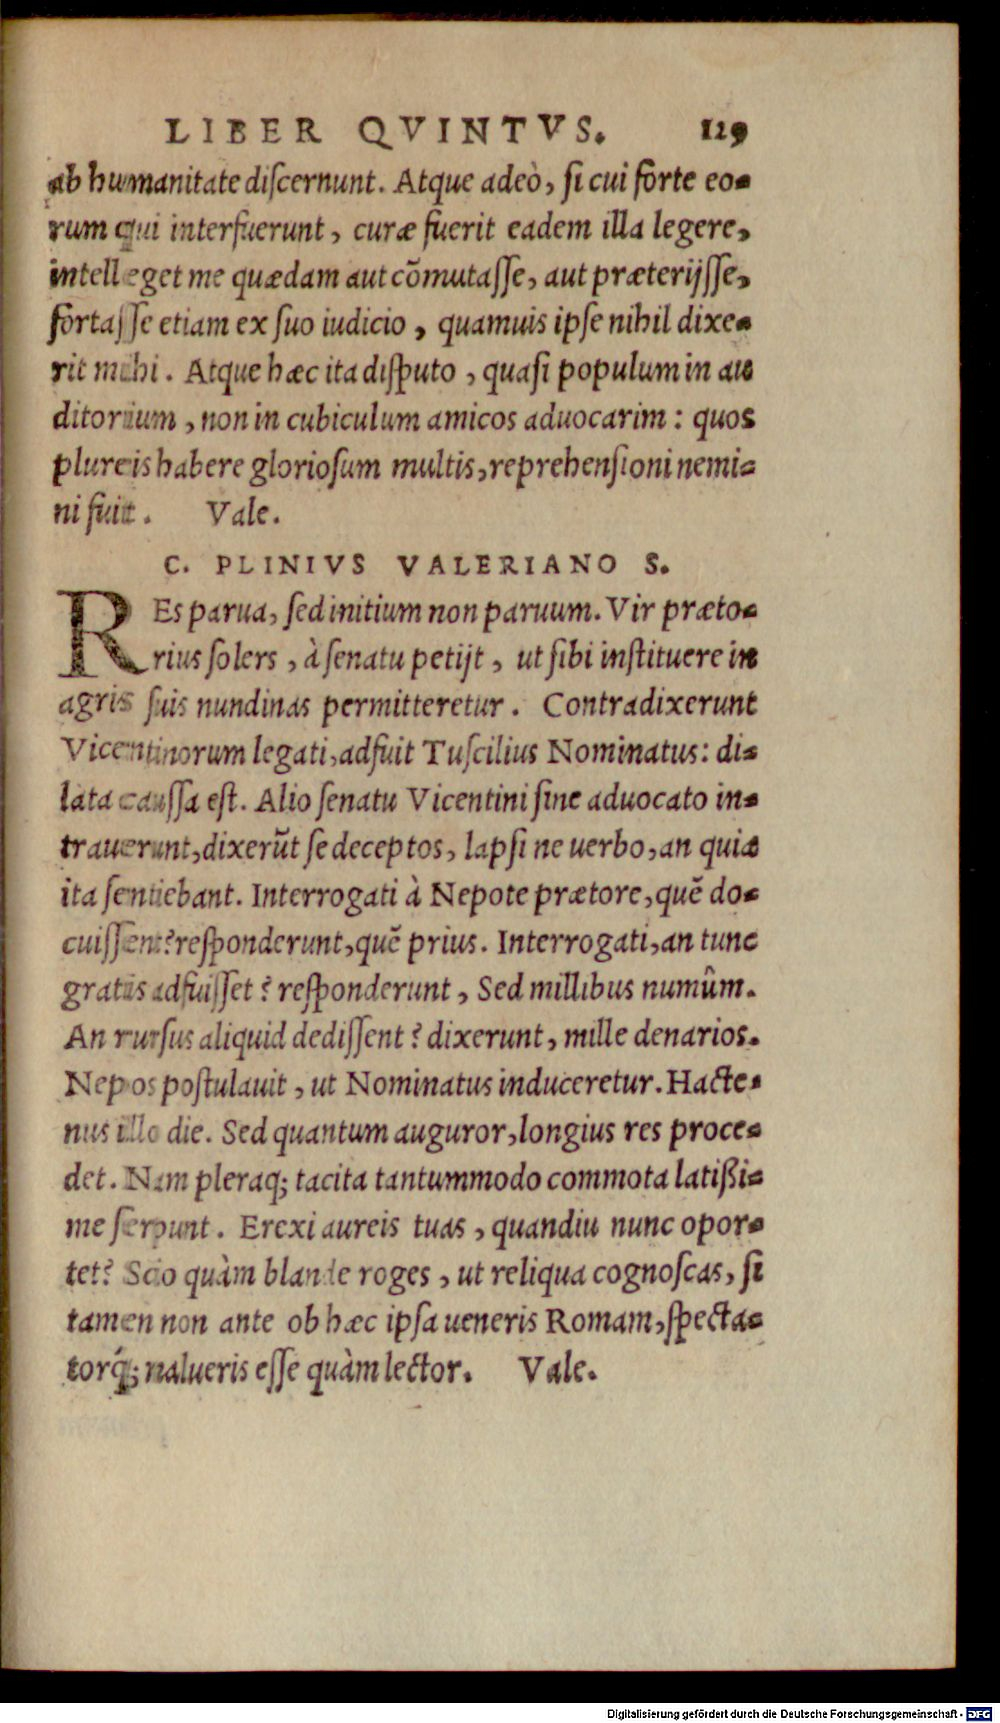 LIBER QVINTVS. 129
ab humanitate diſcernunt. Atque adeò, ſi cui forte eo-
rum qui interfuerunt, curæ fuerit eadem illa legere,
intelleget me quædam aut cõmutaſſe, aut præterijſſe,
fortaſſe etiam ex ſuo iudicio, quamuis ipſe nihil dixe-
rit mihi. Atque hæc ita diſputo, quaſi populum in au
ditorium, non in cubiculum amicos aduocarim: quos
plureis habere glorioſum multis, reprehenſioni nemi-
ni fuit. Vale.
C. PLINIVS VALERIANO S.
REs parua, ſed initium non paruum. Vir præto-
rius ſolers, à ſenatu petijt, ut ſibi inſtituere in
agris ſuis nundinas permitteretur. Contradixerunt
Vicentinorum legati, adfuit Tuſcilius Nominatus: di-
lata cauſſa eſt. Alio ſenatu Vicentini ſine aduocato in-
trauerunt, dixerũt ſe deceptos, lapſi ne uerbo, an quia
ita ſentiebant. Interrogati à Nepote prætore, quẽ do-
cuiſſent? reſponderunt, quẽ prius. Interrogati, an tunc
gratis adfuiſſet? reſponderunt, Sed millibus numûm.
An rurſus aliquid dediſſent? dixerunt, mille denarios.
Nepos poſtulauit, ut Nominatus induceretur. Hacte-
nus illo die. Sed quantum auguror, longius res proce-
det. Nam pleraq; tacita tantummodo commota latißi-
me ſerpunt. Erexi aureis tuas, quandiu nunc opor-
tet? Scio quàm blande roges, ut reliqua cognoſcas, ſi
tamen non ante ob hæc ipſa ueneris Romam, ſpecta-
torq́; malueris eſſe quàm lector. Vale.
Digitalisierung gefördert durch die Deutsche Forschungsgemeinschaft - DFG